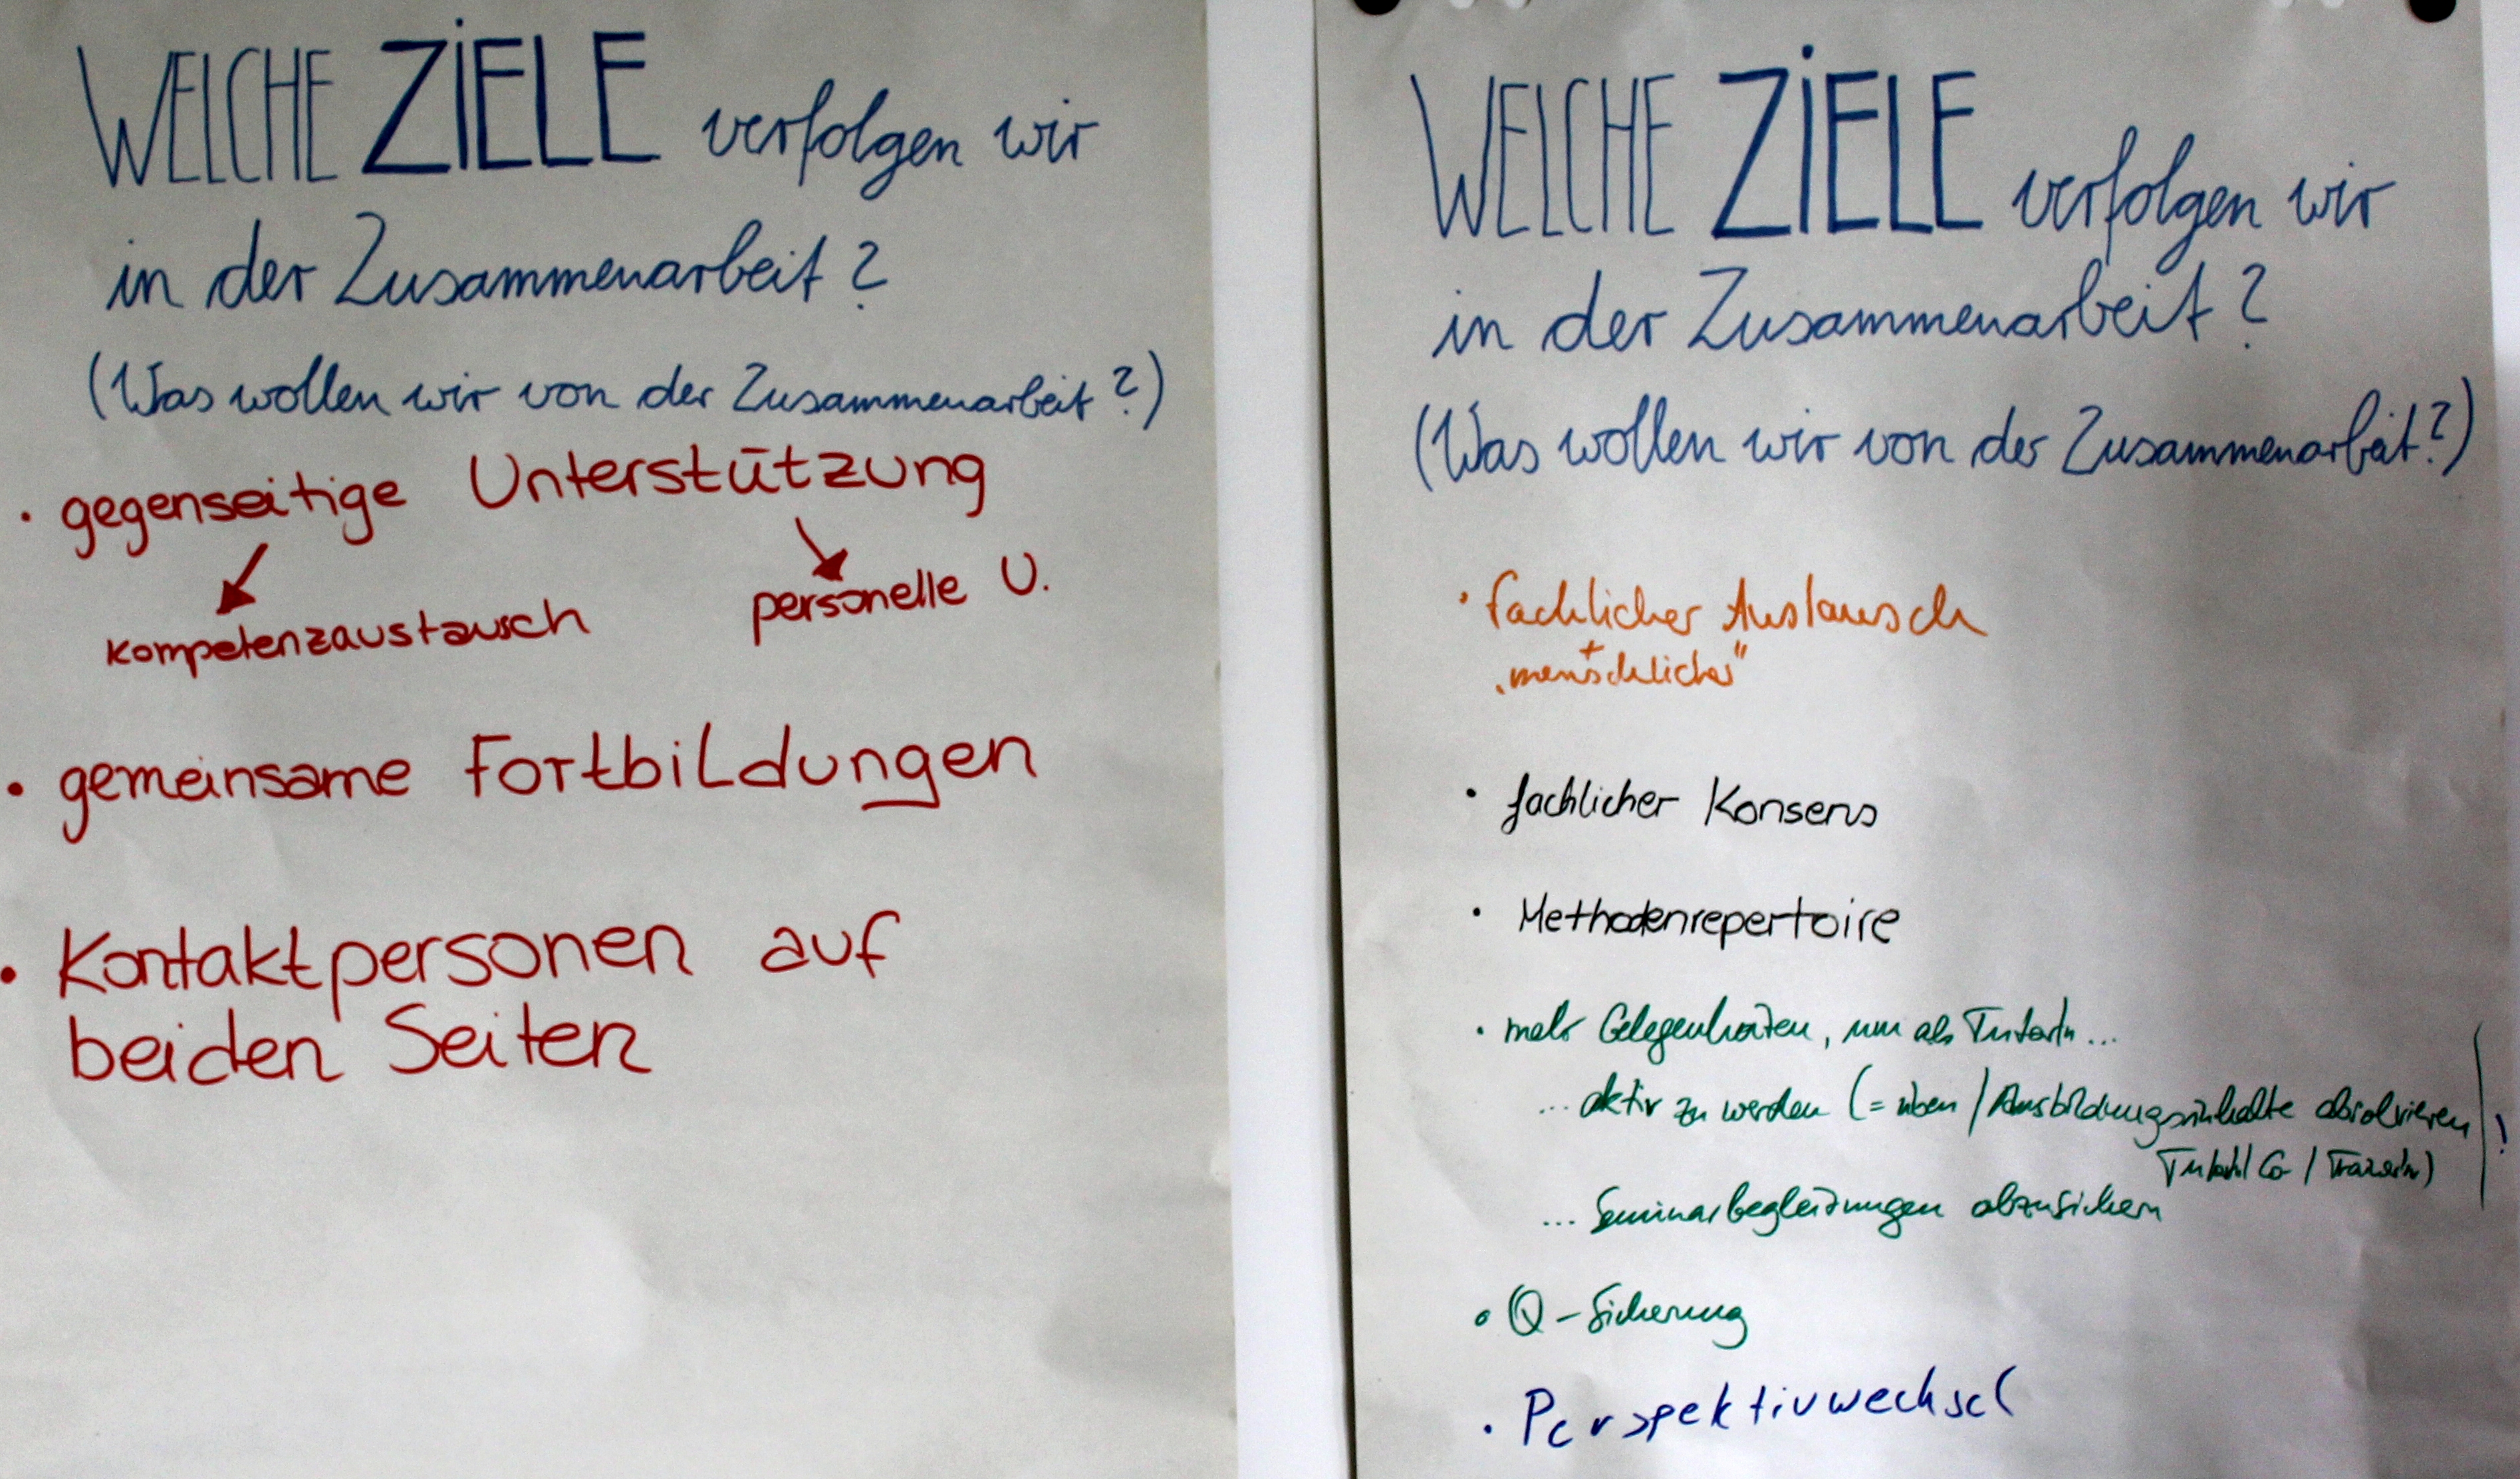 WELCHE ZiELE verfolgen wir
in der Zusammenarbeit?
(Was wollen wir von der Zusammenarbeit?)
• gegenseitige Unterstützung
kompetenzaustausch personelle U.
• gemeinsame Fortbildungen
• Kontaktpersonen auf
beiden Seiten
WELCHE ZiELE verfolgen wir
in der Zusammenarbeit?
(Was wollen wir von der Zusammenarbeit?)
• fachlicher Austausch
+
"menschlicher"
• fachlicher Konsens
• Methodenrepertoire
• mehr Gelegenheiten, um als TutorIn...
... aktiv zu werden (= üben / Ausbildungsinhalte absolvieren !
Co / TrainerIn)
... Seminarbegleitungen abzusichern
• Q-Sicherung
• Perspektivwechsel